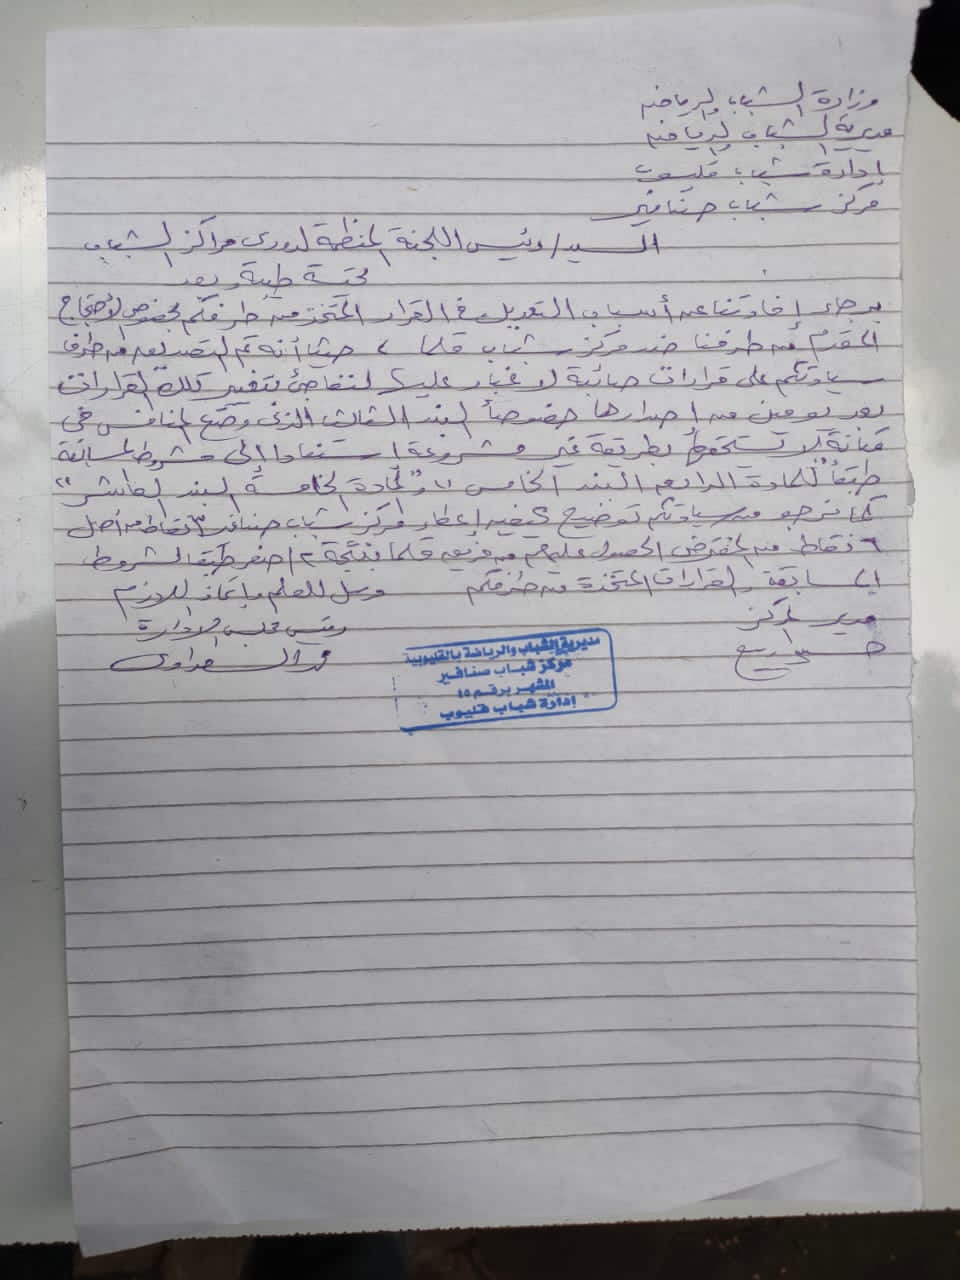 وزارة الشباب والرياضه
مديرية الشباب والرياضه
إدارة شباب قليوب
مركز شباب صنافير
السيد / رئيس اللجنة المنظمة لدورى مراكز الشباب
تحية طيبة وبعد
برجاء إفادتنا عن أسباب التعديل فى القرار المتخذ من طرفكم بخصوص الاحتجاج
المقدم من طرفنا ضد مركز شباب قلما ، حيث أنه تم التصديق من طرف
سيادتكم على قرارات صائبة لا غبار عليها لنتفاجئ بتغير تلك القرارات
بعد يومين من إصدارها خصوصاً البند الثالث الذى وضع المنافس فى
مكانة لا تستحق بطريقة غير مشروعة استنادا إلى شروط المسابقة
طبقاً للمادة الرابعه البند الخامس " و " المادة الخامسة البند العاشر "
كما نرجو من سيادتكم توضيح كيفيه إعطاء مركز شباب صنافير ٣ نقاط من أصل
٦ نقاط من المفترض الحصول عليهم من فريق قلما بنتيجة ٢ / صفر طبقا لشروط
المسابقة والقرارات المتخذة من طرفكم
مرسل للعلم واتخاذ اللازم
مدير المركز
رئيس مجلس الإدارة
محمد
مديرية الشباب والرياضة بالقليوبية
مركز شباب صنافير
المشهر برقم ١٥
إدارة شباب قليوب